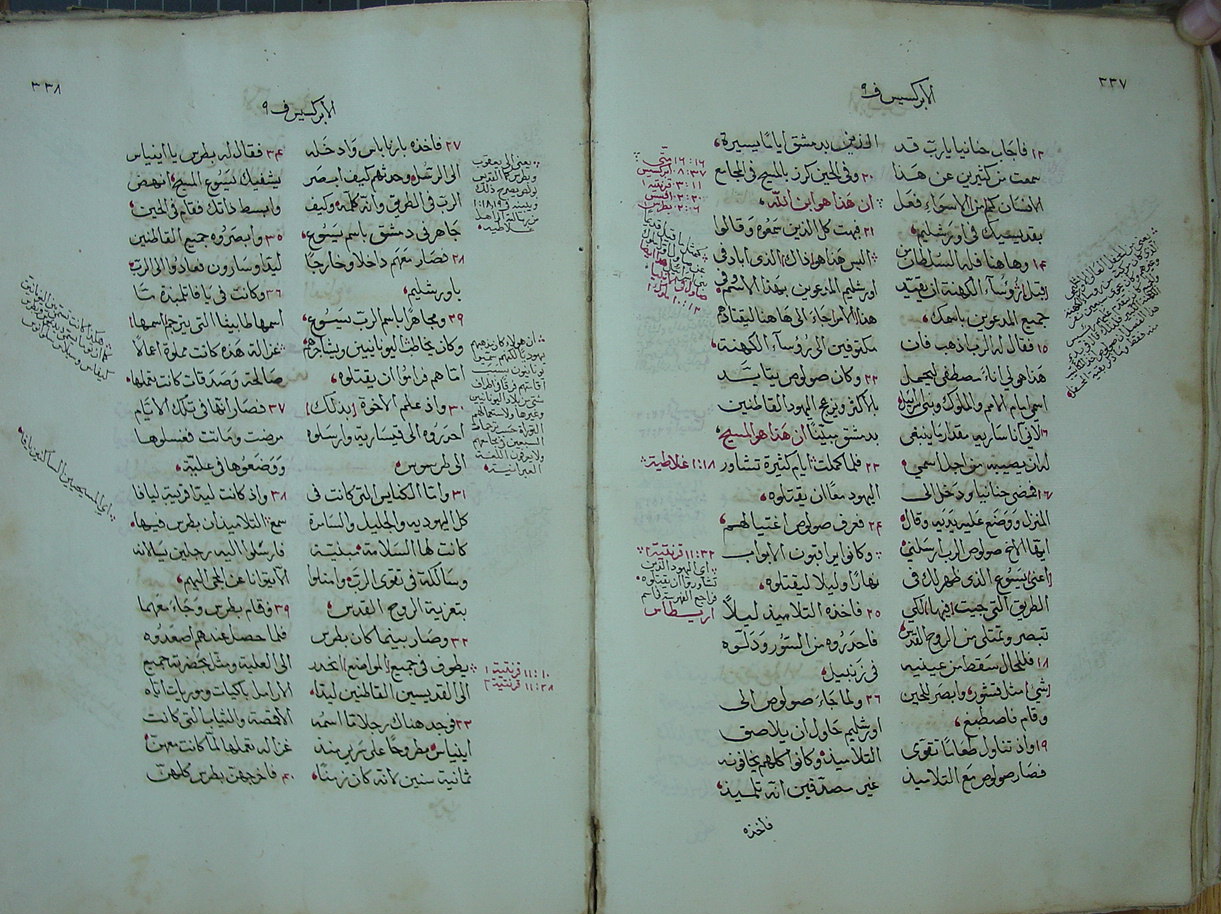 ٣٣٧
الابركسيس ف ٩
١٣ فاجاب حنانيا يا رب قد
سمعت من كثيرين عن هذا
الانسان كم من الاسواء فعل
بقديسيك في اورشليم
١٤ وها هنا فله السلطان من
قبل رؤسآء الكهنة ان يقيد
جميع المدعوين باسمك
١٥ فقال له الرب اذهب فان
هذا هو لي اناء مصطفى ليحمل
اسمي امام الامم والملوك وبني اسرائيل
١٦ لاني انا ساريه مقدار ما ينبغي
له ان يصيبه من اجل اسمي
١٧ فمضى حنانيا ودخل الى
المنزل ووضع عليه يديه وقال
ايها الاخ صولوص الرب ارسلني
اعني يسوع الذي ظهر لك في
الطريق التي جيت فيها لكي
تبصر وتمتلي من الروح القدس
١٨ فللحال سقط من عينيه
شي مثل قشور وابصر للحين
وقام فاصطبغ
١٩ واذ تناول طعامًا تقوى
فصار صولوص مع التلاميد
الذين بدمشق ايامًا يسيرة
٢٠ وفي الحين كرز بالمسيح في المجامع
ان هذا هو ابن الله
٢١ فبهت كل الذين سمعوه وقالوا
اليس هذا هو اذاك الذي اباد في
اورشليم المدعوين بهذا الاسم وفي
هذا الامر جاء الى هاهنا ليقتادهم
مكتوفين الى رؤسآء الكهنة
٢٢ وكان صولوص يتايد
بالاكثر ويزعج اليهود القاطنين
بدمشق مبينًا ان هذا هو المسيح
٢٣ فلما كملت ايام كثيرة تشاور
اليهود معًا ان يقتلوه
٢٤ فعرف صولوص اغتيالهم
وكانوا يراقبون الابواب
نهارًا وليلا ليقتلوه
٢٥ فاخذه التلاميذ ليلًا
فاحدروه من السور ودلوه
في زنبيل
٢٦ ولما جاء صولوص الى
اورشليم حاول ان يلاصق
التلاميذ وكانوا كلهم يخافونه
غير مصدقين انه تلميذ
فاخذه
١٦:١٦ متى
٣٧:٨ ابركسيس
١١:٣ قرنتية ١
٢٠:٢ افسس
٦:٢ بطرس ١
١٨:١ غلاطية
٣٢:١١ قرنتية ٢
اي اليهود الذين
تشاوروا ان يقتلوه
فراجع الفهرسة في اسم
اريطاس
٣٣٨
الابركسيس ف ٩
٢٧ فاخذه بارنابا س وادخله
الى الرسل وحدثهم كيف ابصر
الرب في الطريق وانه كلمه وكيف
جاهر في دمشق باسم يسوع
٢٨ فصار معهم داخلا وخارجًا
باورشليم
٢٩ ومجاهرًا باسم الرب يسوع
وكان يخاطب اليونانيين ويشاجرهم
امّا هم فراموا ان يقتلوه
٣٠ واذ علم الاخوة بذلك
احدروه الى قيسارية وارسلوه
الى طرسوس
٣١ وامّا الكنايس التي كانت في
كل اليهودية والجليل والسامرة
كانت لها السلامة مبنيّة
وسالكة في تقوى الرب وامتلوا
بتعزية الروح القدس
٣٢ وصار بينما كان بطرس
يطوف في جميع المواضع انحدر
الى القديسين القاطنين ليدّا
٣٣ فوجد هناك رجلا ما اسمه
اينياس مطروحًا على سرير منذ
ثمانية سنين لانه كان زمنًا
٣٤ فقال له بطرس يا اينياس
يشفيك يسوع المسيح انهض
وابسط ذاتك فقام في الحين
٣٥ وابصروه جميع القاطنين
ليدّا وسارون فعادوا الى الرب
٣٦ وكانت في يافا تلميذة مّا
اسمها طابيثا التي يترجم اسمها
غزالة هذه كانت مملوة اعمالًا
صالحة وصدقات كانت تعملها
٣٧ فصار انها في تلك الايام
مرضت وماتت فغسلوها
ووضعوها في عليّة
٣٨ واذ كانت ليدّا قريبة ليافا
سمع التلاميذ ان بطرس فيها
فارسلوا اليه رجلين يسالانه
الا يتوانا عن المجي اليهم
٣٩ وقام بطرس وجاء معهما
فلما حصل عندهم اصعدوه
الى العلية ومثل بحضرته جميع
الارامل باكيات وموريات اياه
الاقمصة والثياب التي كانت
غزالة تعملها لما كانت معهن
٤٠ فاخرجهن بطرس كلهن
١٠:١١ قرنتية ١
٢٨:١١ قرنتية ٢